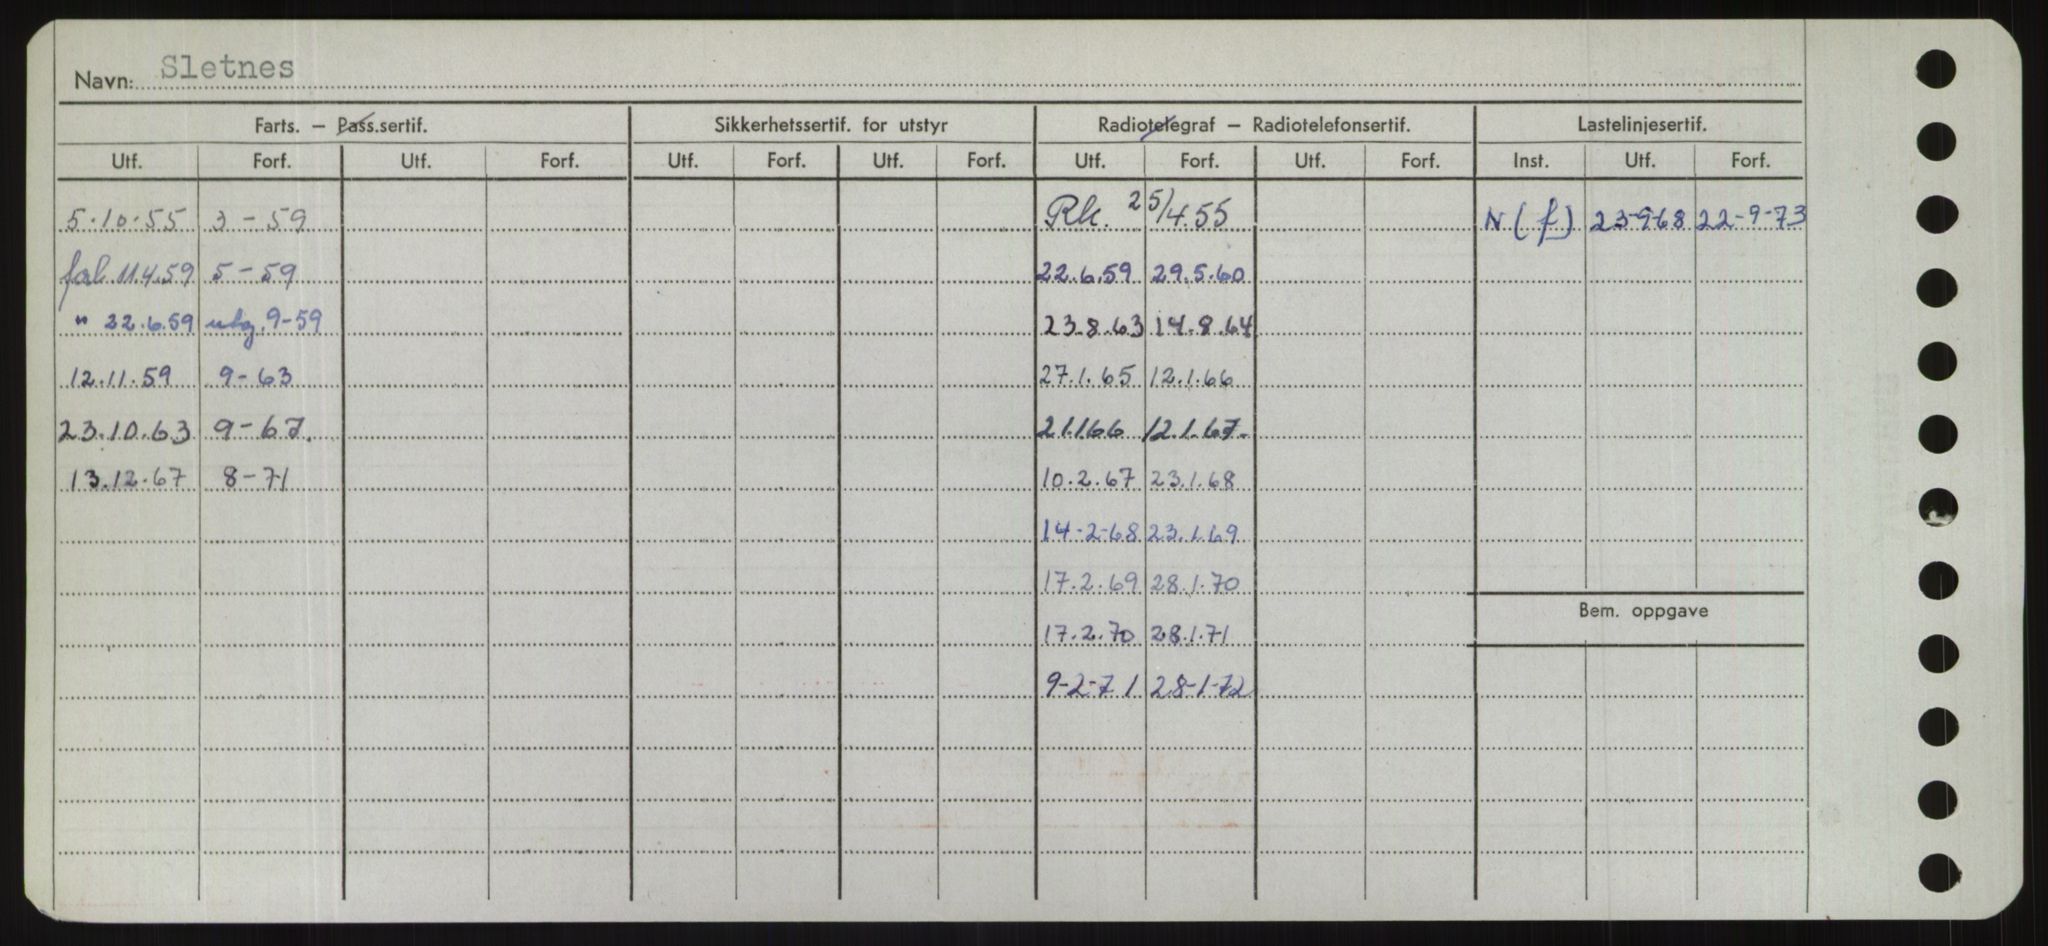 Navn: Sletnes
Farts. – Pass.sertif. Sikkerhetssertif. for utstyr Radiotelegraf – Radiotelefonsertif. Lastelinjesertif.
Utf. Forf. Utf. Forf. Utf. Forf. Utf. Forf. Utf. Forf. Utf. Forf. Inst. Utf. Forf.
5.10.55 3-59 Rk. 25/4.55 N (f) 23-9-68 22-9-73
forl. 11.4.59 5-59 22.6.59 29.5.60
" 22.6.59 utg. 9-59 23.8.63 14.8.64
12.11.59 9-63 27.1.65 12.1.66
23.10.63 9-67. 21.1.66 12.1.67.
13.12.67 8-71 10.2.67 23.1.68
14-2-68 23.1.69
17.2.69 28.1.70
Bem. oppgave
17.2.70 28.1.71
9-2-71 28-1-72